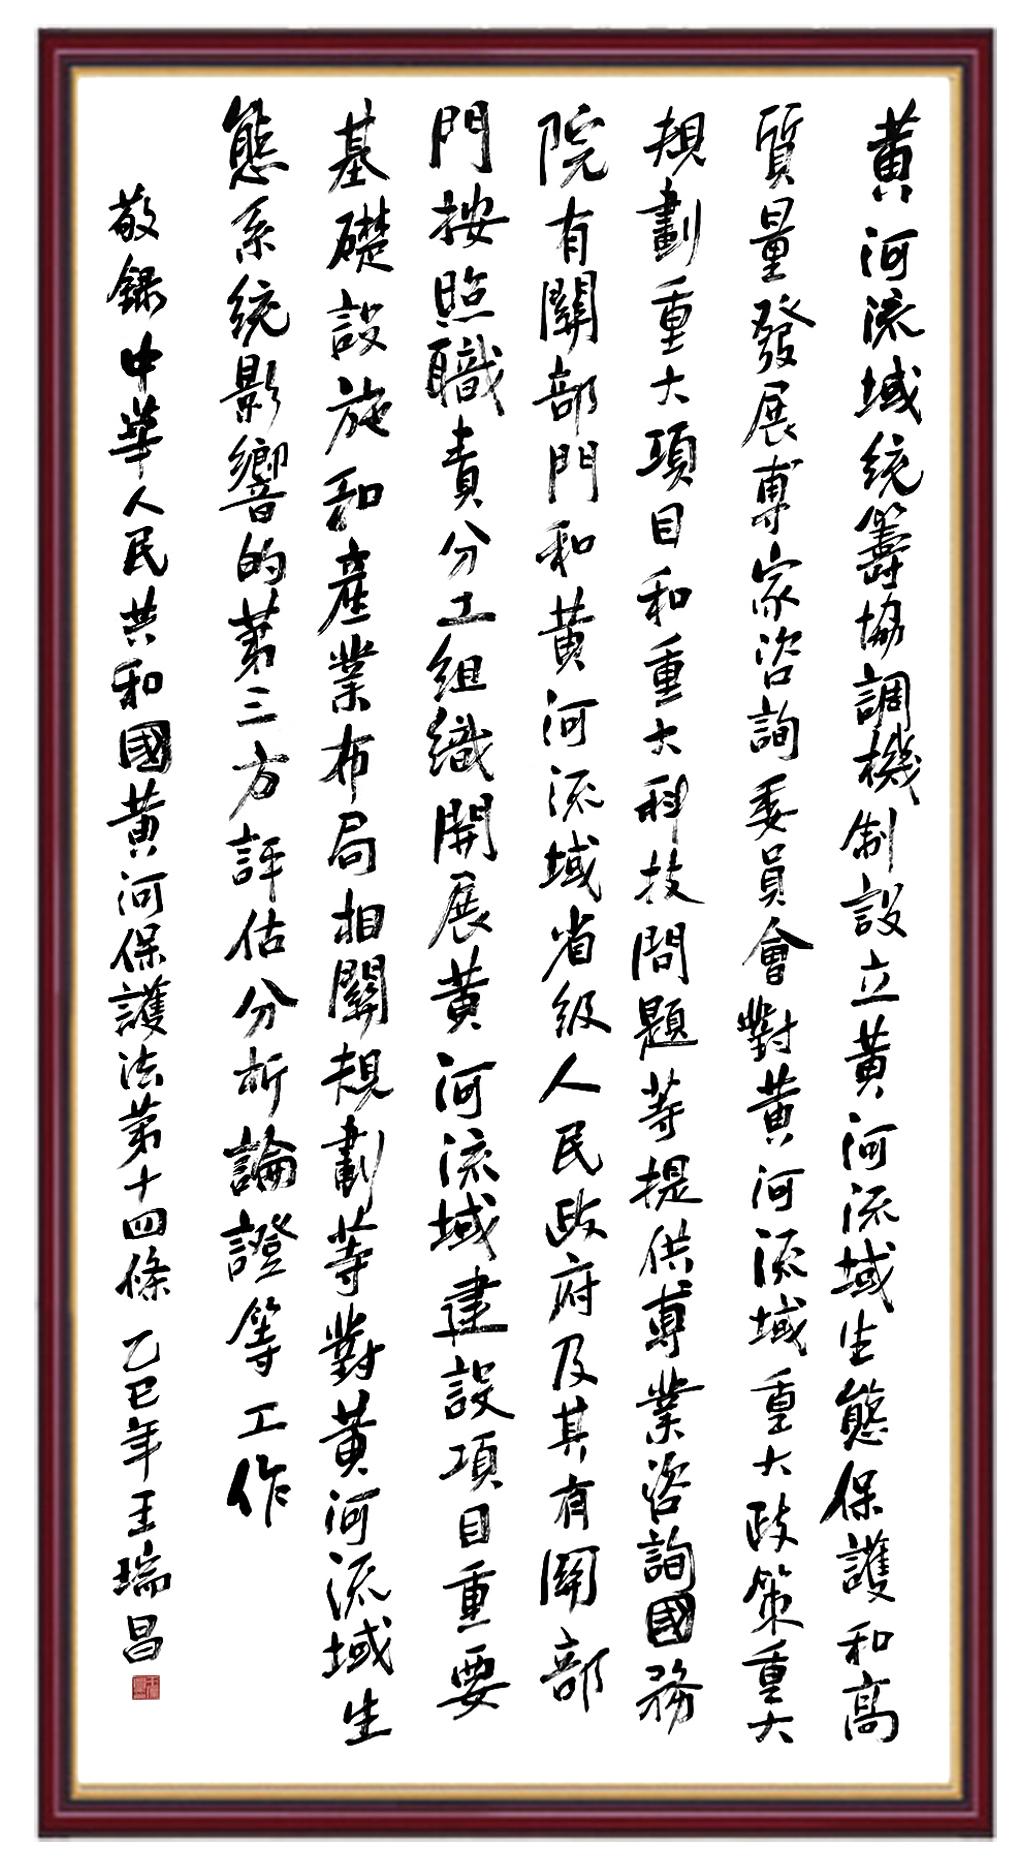 黃河流域統籌協調機制設立黃河流域生態保護和高
質量發展專家咨詢委員會對黃河流域重大政策重大
規劃重大項目和重大科技問題等提供專業咨詢國務
院有關部門和黃河流域省級人民政府及其有關部
門按照職責分工組織開展黃河流域建設項目重要
基礎設施和產業布局相關規劃等對黃河流域生
態系統影響的第三方評估分析論證等工作
敬錄中華人民共和國黃河保護法第十四條 乙巳年王瑞昌